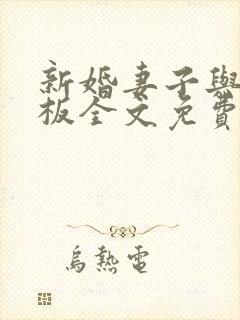 新婚妻子與
板全文免費
烏熱電